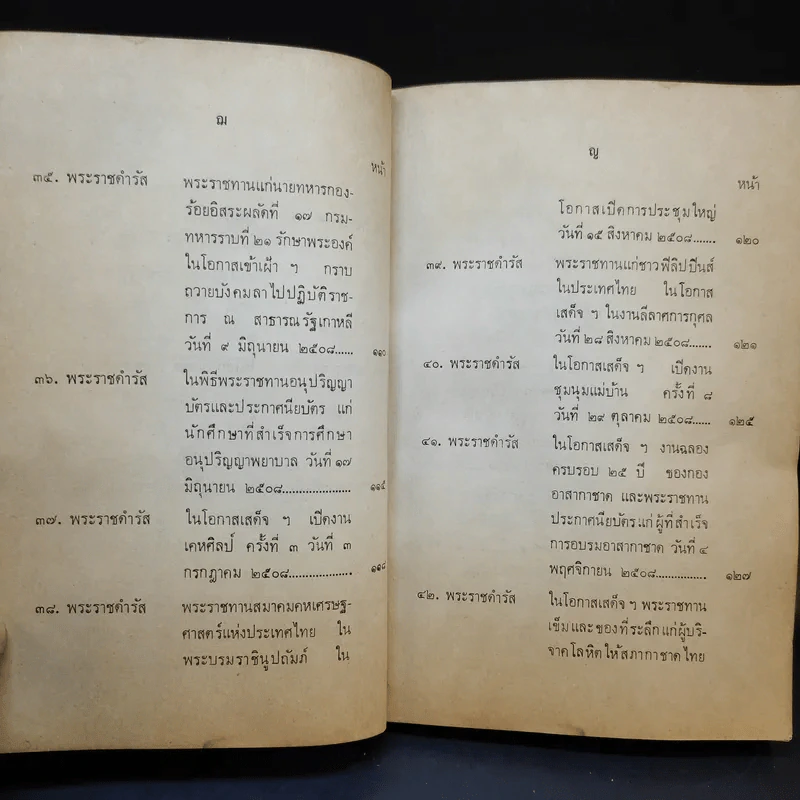 ฌ
หน้า
๓๕. พระราชดำรัส พระราชทานแก่นายทหารกอง-
ร้อยอิสระผลัดที่ ๑๗ กรม-
ทหารราบที่ ๒๑ รักษาพระองค์
ในโอกาสเข้าเฝ้า ฯ กราบ
ถวายบังคมลาไปปฏิบัติราช-
การ ณ สาธารณรัฐเกาหลี
วันที่ ๙ มิถุนายน ๒๕๐๘...... ๑๑๐
๓๖. พระราชดำรัส ในพิธีพระราชทานอนุปริญญา
บัตรและประกาศนียบัตร แก่
นักศึกษาที่สำเร็จการศึกษา
อนุปริญญาพยาบาล วันที่ ๑๗
มิถุนายน ๒๕๐๘..................... ๑๑๕
๓๗. พระราชดำรัส ในโอกาสเสด็จ ฯ เปิดงาน
เคหศิลป์ ครั้งที่ ๓ วันที่ ๓
กรกฎาคม ๒๕๐๘................... ๑๑๘
๓๘. พระราชดำรัส พระราชทานสมาคมคหเศรษฐ-
ศาสตร์แห่งประเทศไทย ใน
พระบรมราชินูปถัมภ์ ใน
ญ
หน้า
โอกาสเปิดการประชุมใหญ่
วันที่ ๑๕ สิงหาคม ๒๕๐๘....... ๑๒๐
๓๙. พระราชดำรัส พระราชทานแก่ชาวฟิลิปปินส์
ในประเทศไทย ในโอกาส
เสด็จ ฯ ในงานลีลาศการกุศล
วันที่ ๒๘ สิงหาคม ๒๕๐๘....... ๑๒๑
๔๐. พระราชดำรัส ในโอกาสเสด็จ ฯ เปิดงาน
ชุมนุมแม่บ้าน ครั้งที่ ๘
วันที่ ๒๙ ตุลาคม ๒๕๐๘...... ๑๒๕
๔๑. พระราชดำรัส ในโอกาสเสด็จ ฯ งานฉลอง
ครบรอบ ๒๕ ปี ของกอง
อาสากาชาด และพระราชทาน
ประกาศนียบัตรแก่ ผู้ที่สำเร็จ
การอบรมอาสากาชาด วันที่ ๔
พฤศจิกายน ๒๕๐๘............... ๑๒๗
๔๒. พระราชดำรัส ในโอกาสเสด็จ ฯ พระราชทาน
เข็มและของที่ระลึกแก่ผู้บริ-
จาคโลหิตให้สภากาชาดไทย